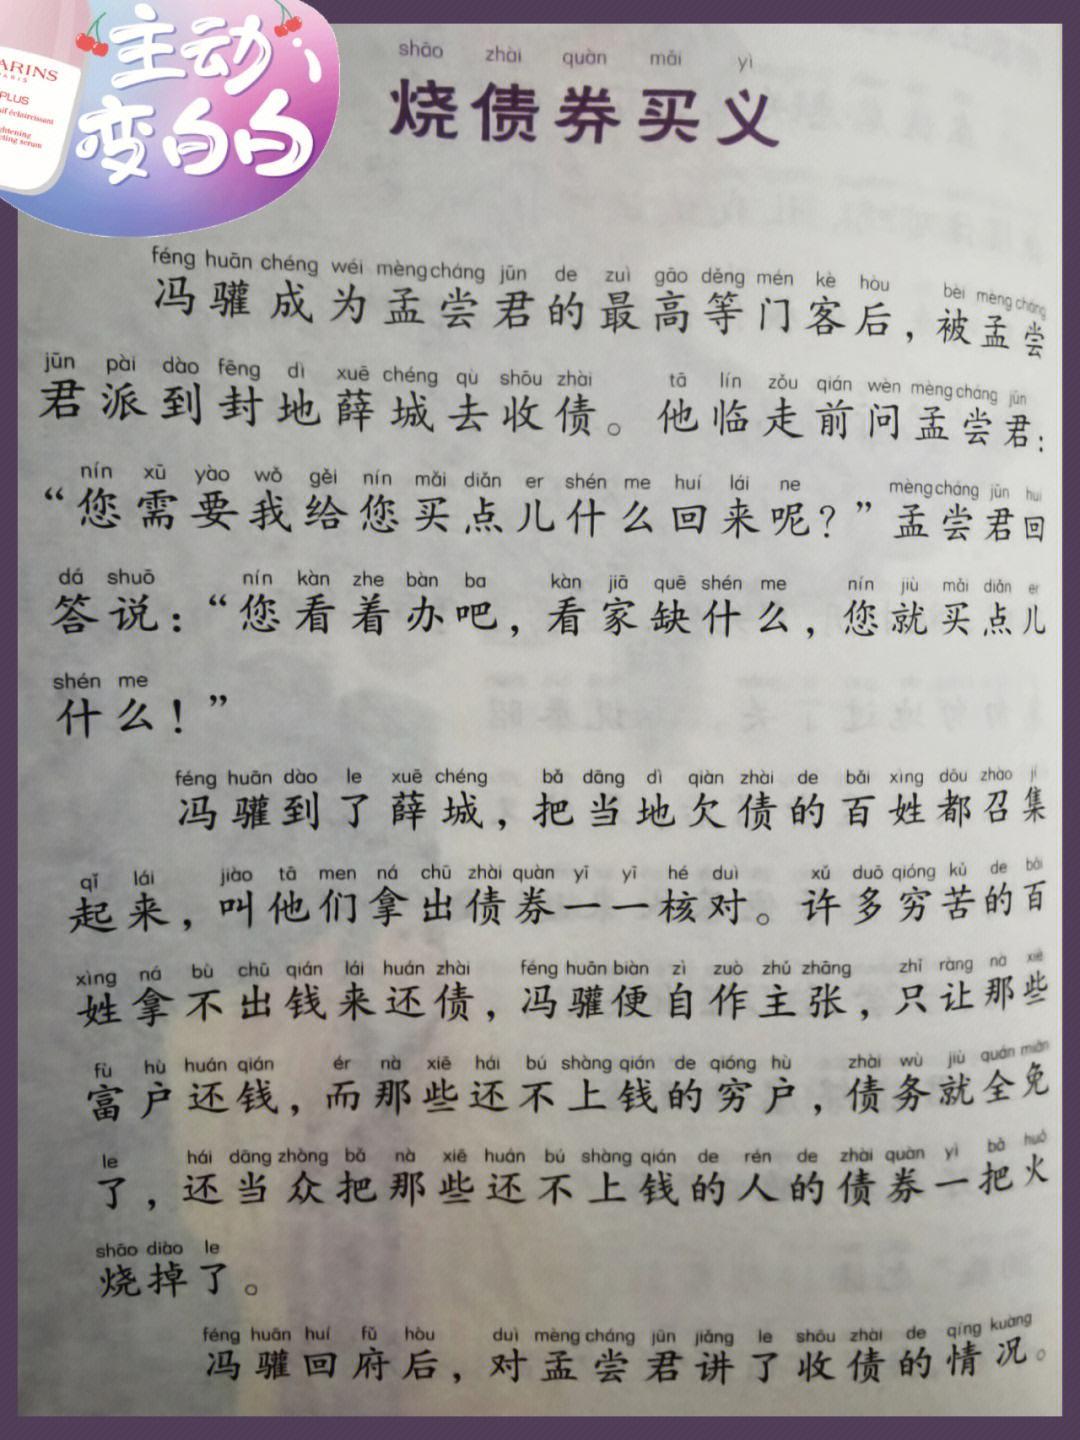 ARINS
PARIS
PLUS
主动
变白白
shāo zhài quàn mǎi yì
烧债券买义
féng huān chéng wéi mèng cháng jūn de zuì gāo děng mén kè hòu bèi mèng cháng
冯驩成为孟尝君的最高等门客后，被孟尝
jūn pài dào fēng dì xuē chéng qù shōu zhài tā lín zǒu qián wèn mèng cháng jūn
君派到封地薛城去收债。他临走前问孟尝君：
nín xū yào wǒ gěi nín mǎi diǎn er shén me huí lái ne mèng cháng jūn huí
“您需要我给您买点儿什么回来呢？”孟尝君回
dá shuō nín kàn zhe bàn ba kàn jiā quē shén me nín jiù mǎi diǎn er
答说：“您看着办吧，看家缺什么，您就买点儿
shén me
什么！”
féng huān dào le xuē chéng bǎ dāng dì qiàn zhài de bǎi xìng dōu zhào jí
冯驩到了薛城，把当地欠债的百姓都召集
qǐ lái jiào tā men ná chū zhài quàn yī yī hé duì xǔ duō qióng kǔ de bǎi
起来，叫他们拿出债券一一核对。许多穷苦的百
xìng ná bù chū qián lái huán zhài féng huān biàn zì zuò zhǔ zhāng zhǐ ràng nà xiē
姓拿不出钱来还债，冯驩便自作主张，只让那些
fù hù huán qián ér nà xiē hái bú shàng qián de qióng hù zhài wù jiù quán miǎn
富户还钱，而那些还不上钱的穷户，债务就全免
le hái dāng zhòng bǎ nà xiē huán bú shàng qián de rén de zhài quàn yì bǎ huǒ
了，还当众把那些还不上钱的人的债券一把火
shāo diào le
烧掉了。
féng huān huí fǔ hòu duì mèng cháng jūn jiǎng le shōu zhài de qíng kuàng
冯驩回府后，对孟尝君讲了收债的情况。